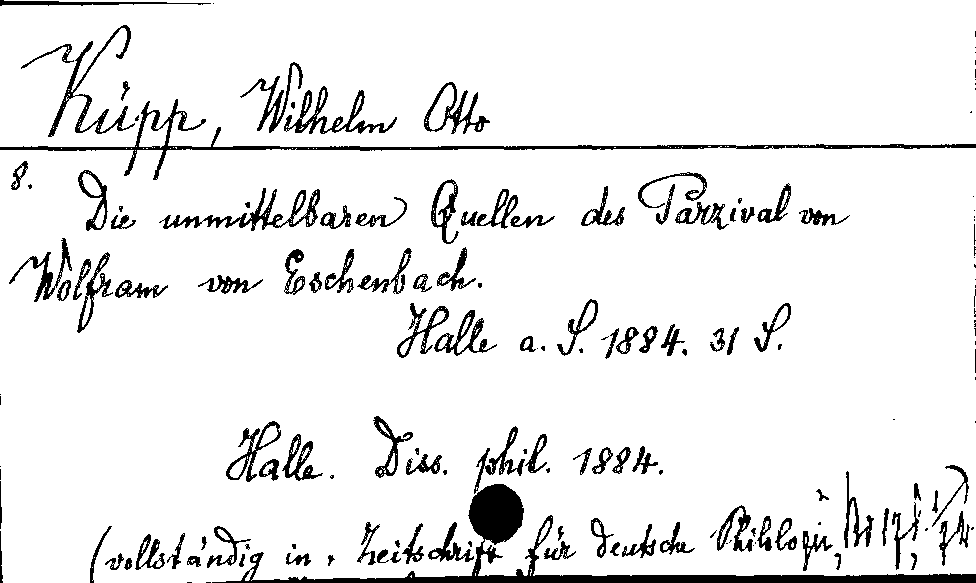 Küpp, Wilhelm Otto
8.
Die unmittelbaren Quellen des Parzival von
Wolfram von Eschenbach.
Halle a. S. 1884. 31 S.
Halle. Diss. phil. 1884.
(vollständig in: Zeitschrift für deutsche Philologie,